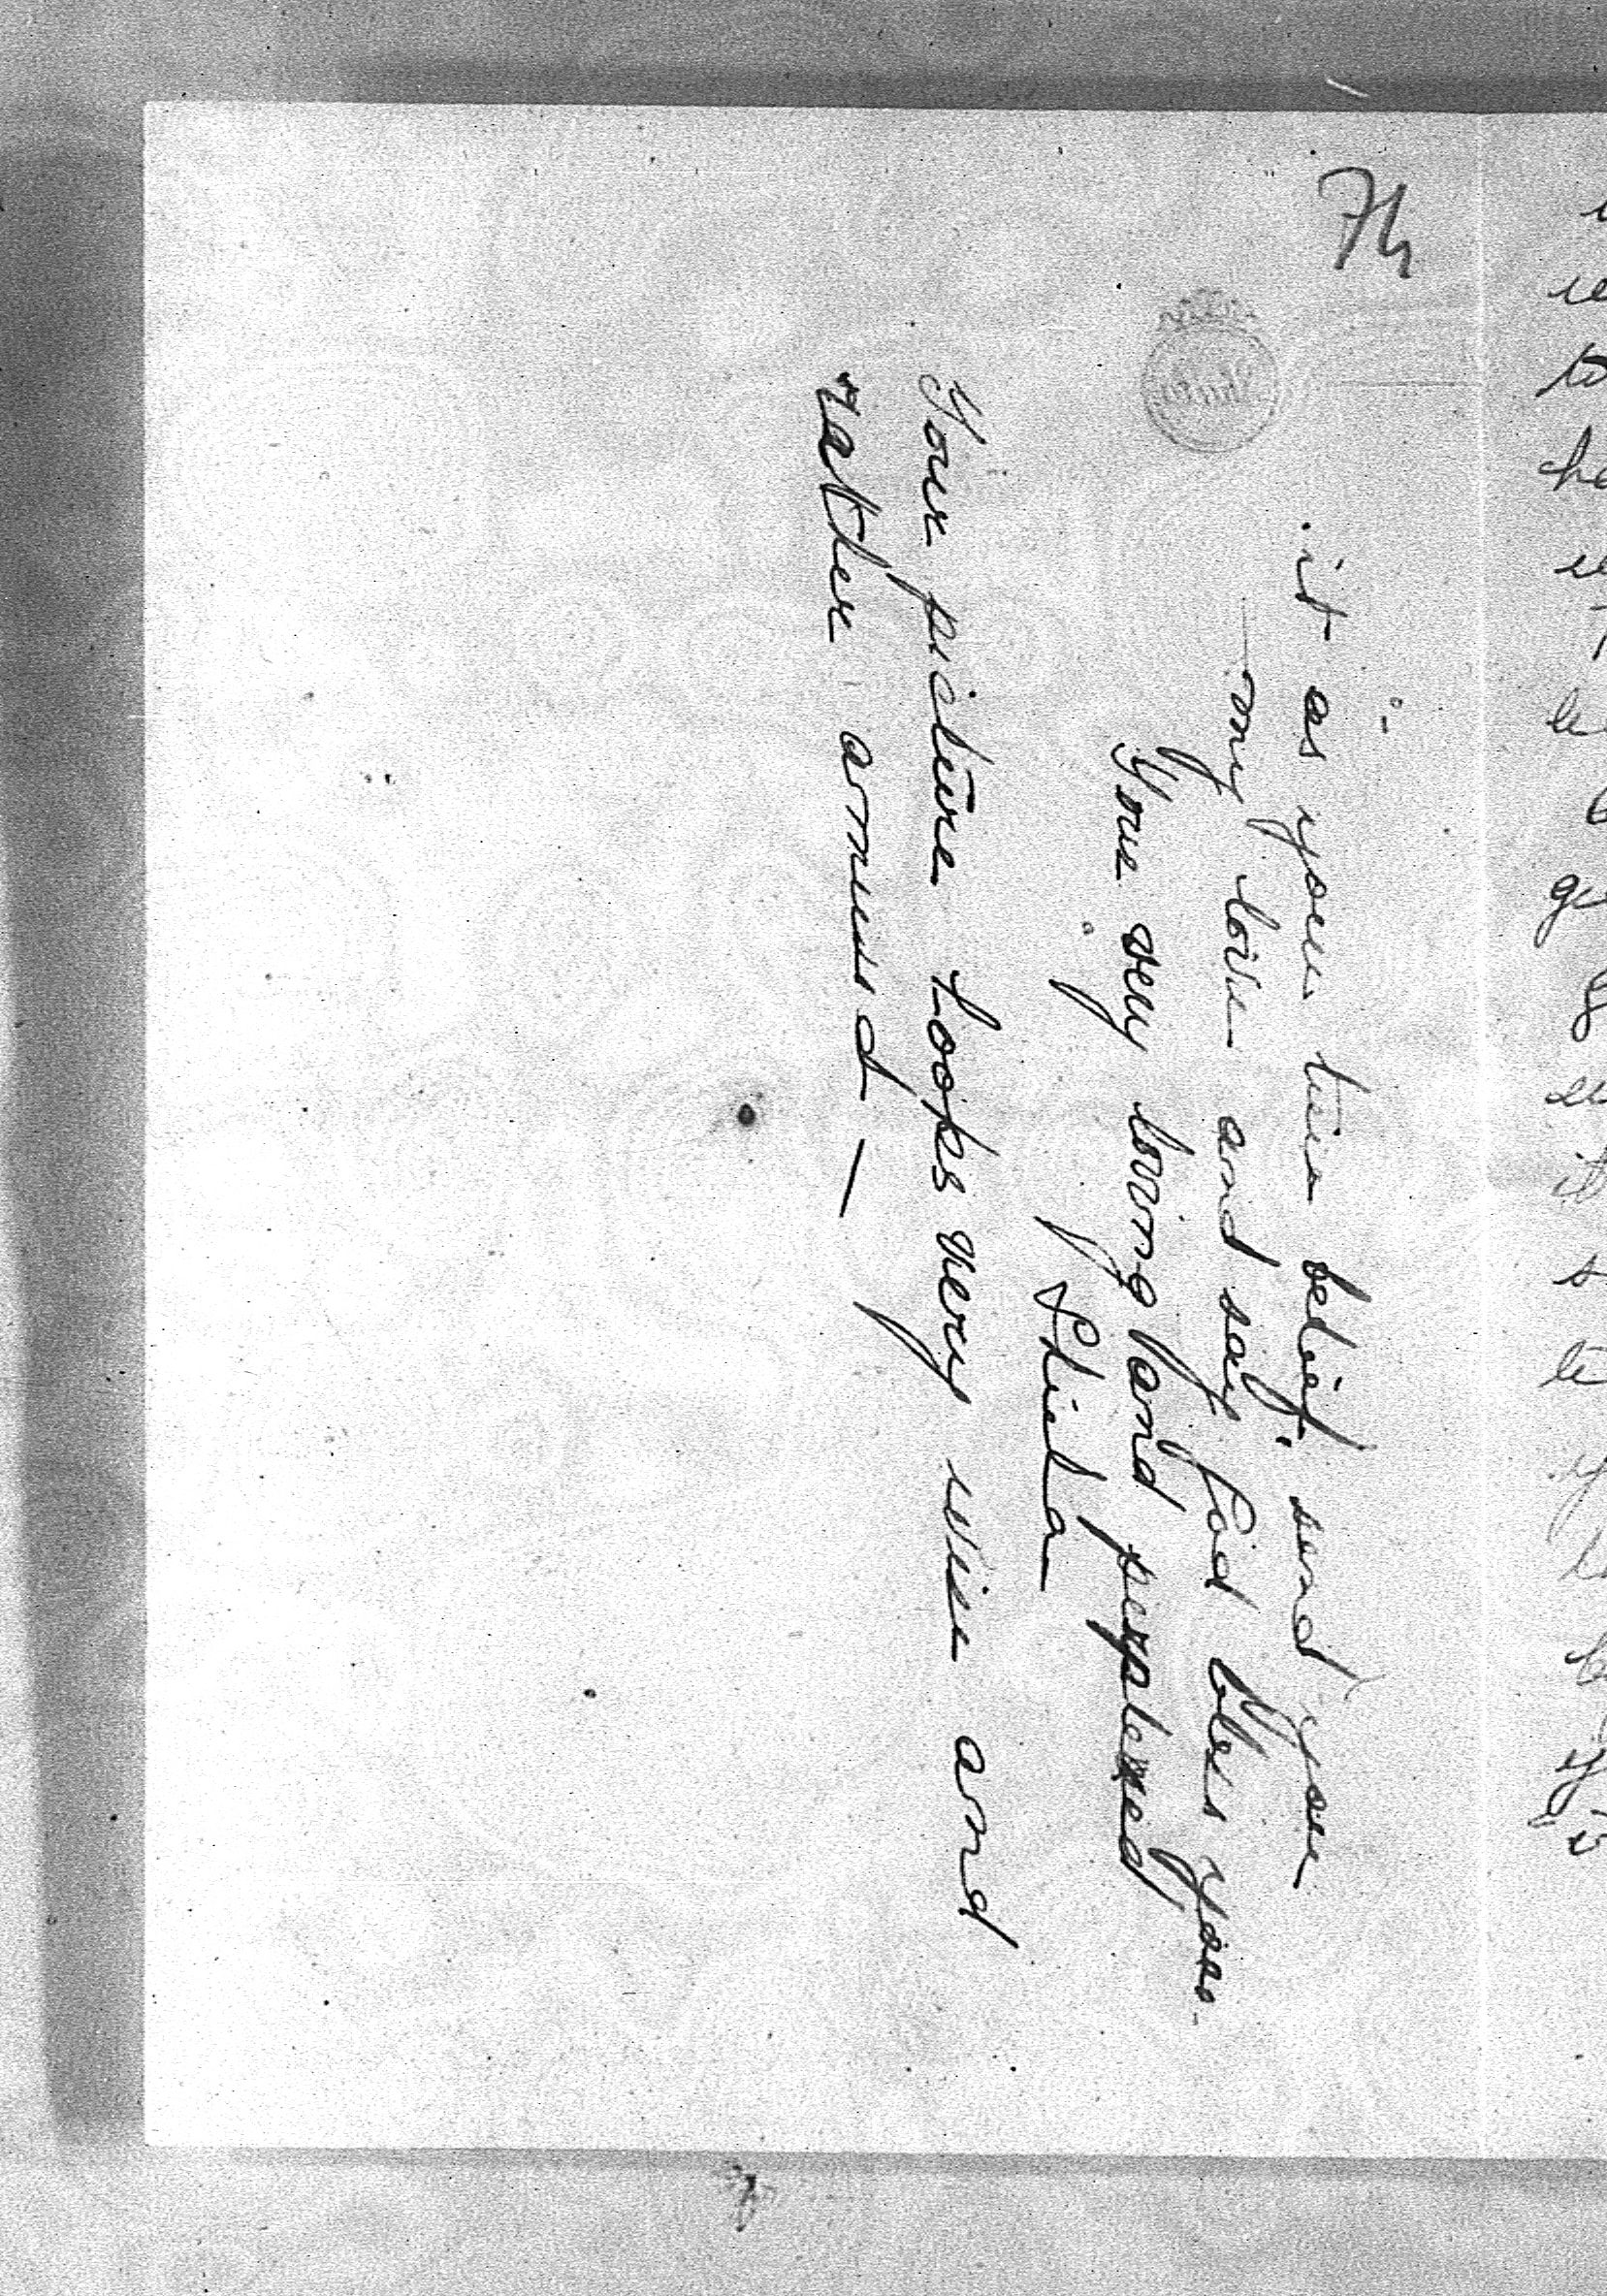 74
it as your true belief, send you
my love and say God bless you.
Your very loving and perplexed
Shiela
Your picture looks very wise and
rather amused —